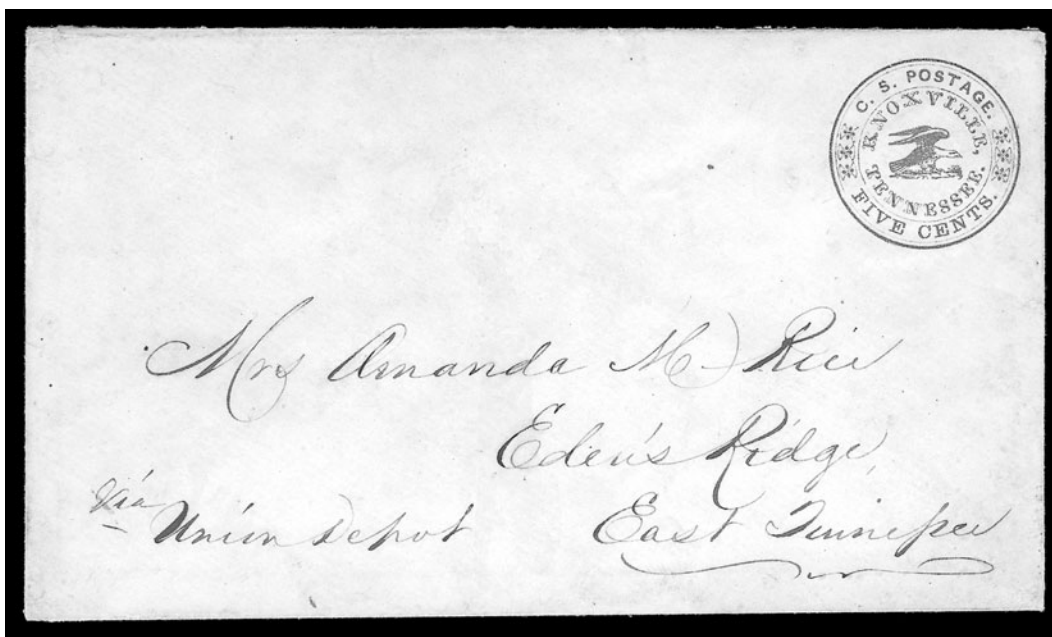 C. S. POSTAGE.
KNOXVILLE,
TENNESSEE.
FIVE CENTS.
Mrs Amanda M. Rice
Eden's Ridge,
via
Union Depot
East Tennessee